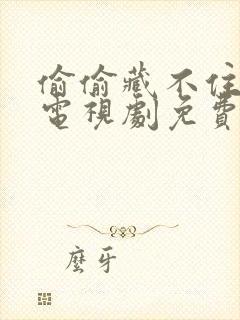 偷偷藏不住
電視劇免費
麼牙